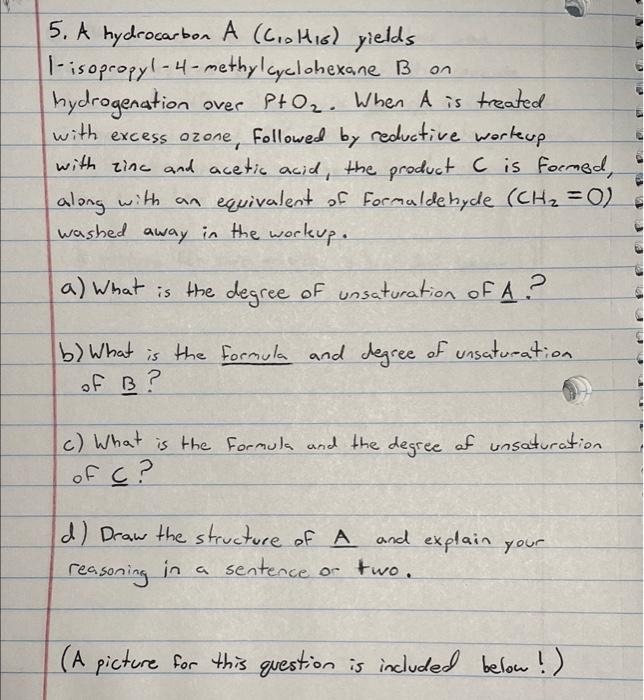 5. A hydrocarbon A (C₁₀H₁₆) yields
1-isopropyl-4-methylcyclohexane B on
hydrogenation over PtO₂. When A is treated
with excess ozone, followed by reductive workup
with zinc and acetic acid, the product C is formed,
along with an equivalent of formaldehyde (CH₂=O)
washed away in the workup.
a) What is the degree of unsaturation of A?
b) What is the formula and degree of unsaturation
of B?
c) What is the formula and the degree of unsaturation
of C?
d) Draw the structure of A and explain your
reasoning in a sentence or two.
(A picture for this question is included below!)